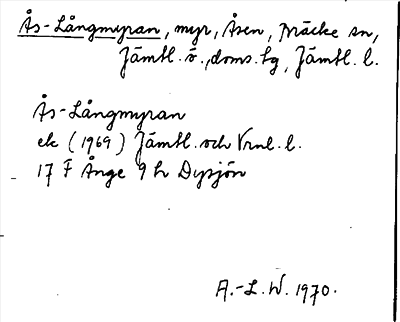 Ås-Långmyran, myr, Åsen, Bräcke sn,
Jämtl. ö., doms. tg, Jämtl. l.
Ås-Långmyran
ek (1969) Jämtl. och Vrnl. l.
17 F Ånge 9 h Dysjön
A.-L. W. 1970.